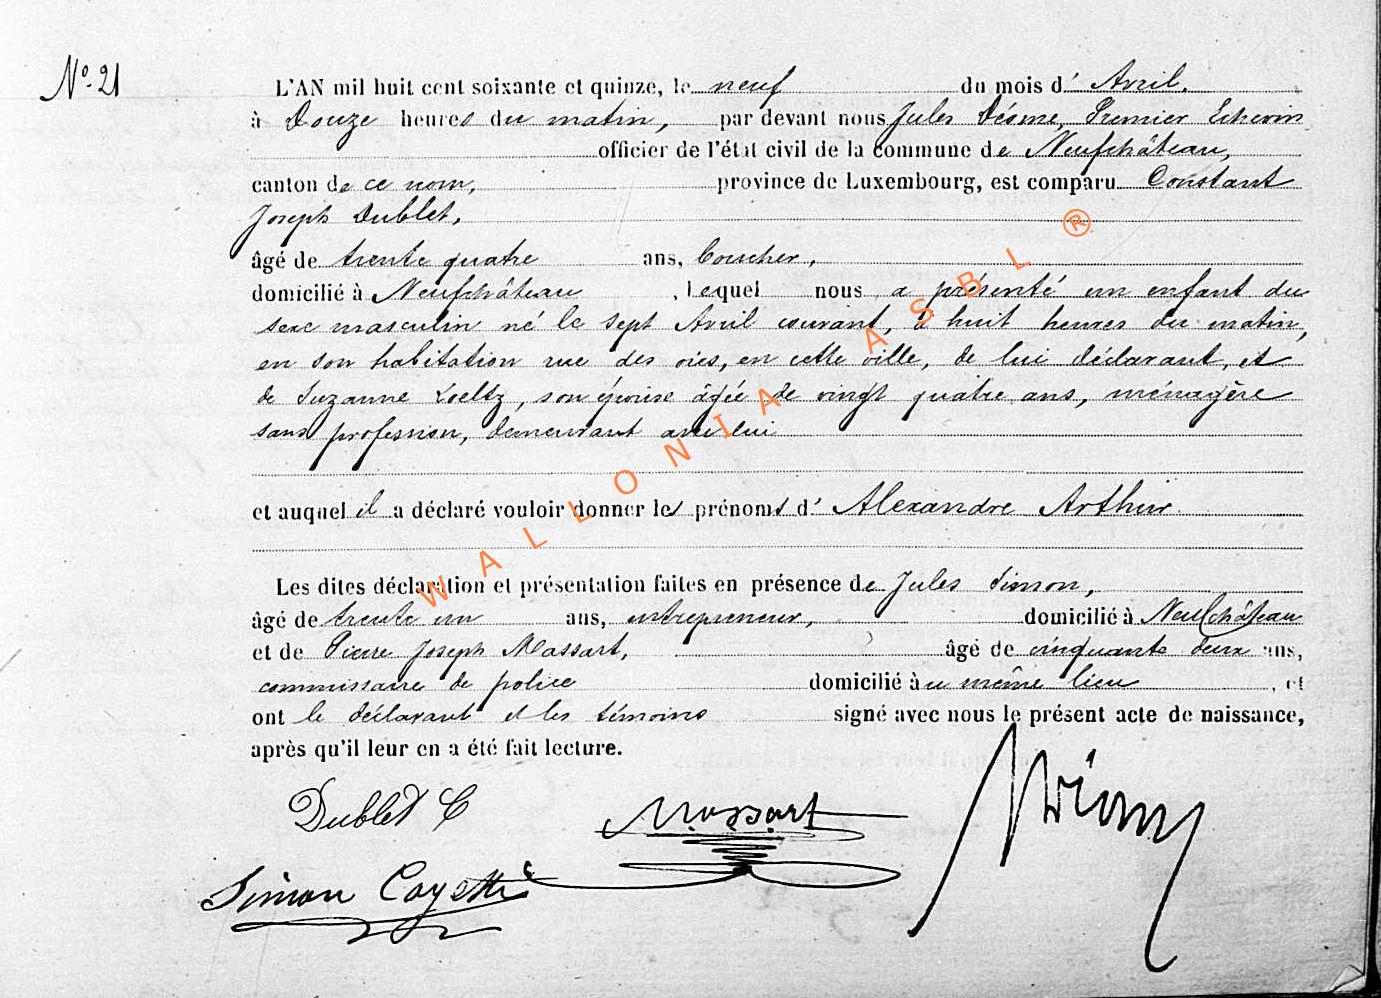 N.º 21
L'AN mil huit cent soixante et quinze, le neuf du mois d' Avril.
à Douze heures du matin, par devant nous Jules Désme, Premier Echevin
officier de l'état civil de la commune de Neufchâteau,
canton de ce nom, province de Luxembourg, est comparu Constant
Joseph Dublet,
âgé de trente quatre ans, Courcher,
domicilié à Neufchâteau, lequel nous a présenté un enfant du
sexe masculin né le sept Avril courant, à huit heures du matin,
en son habitation rue des oies, en cette ville, de lui déclarant, et
de Suzanne Loeltz, son épouse âgée de vingt quatre ans, ménagère
sans profession, demeurant avec lui
et auquel il a déclaré vouloir donner les prénoms d' Alexandre Arthur.
Les dites déclaration et présentation faites en présence de Jules Simon,
âgé de trente un ans, entrepreneur, domicilié à Neufchâteau
et de Pierre Joseph Massart, âgé de cinquante deux ans,
commissaire de police domicilié au même lieu, et
ont le déclarant et les témoins signé avec nous le présent acte de naissance,
après qu'il leur en a été fait lecture.
Dublet C
Massart
Simon
WALLONIA ASBL ®